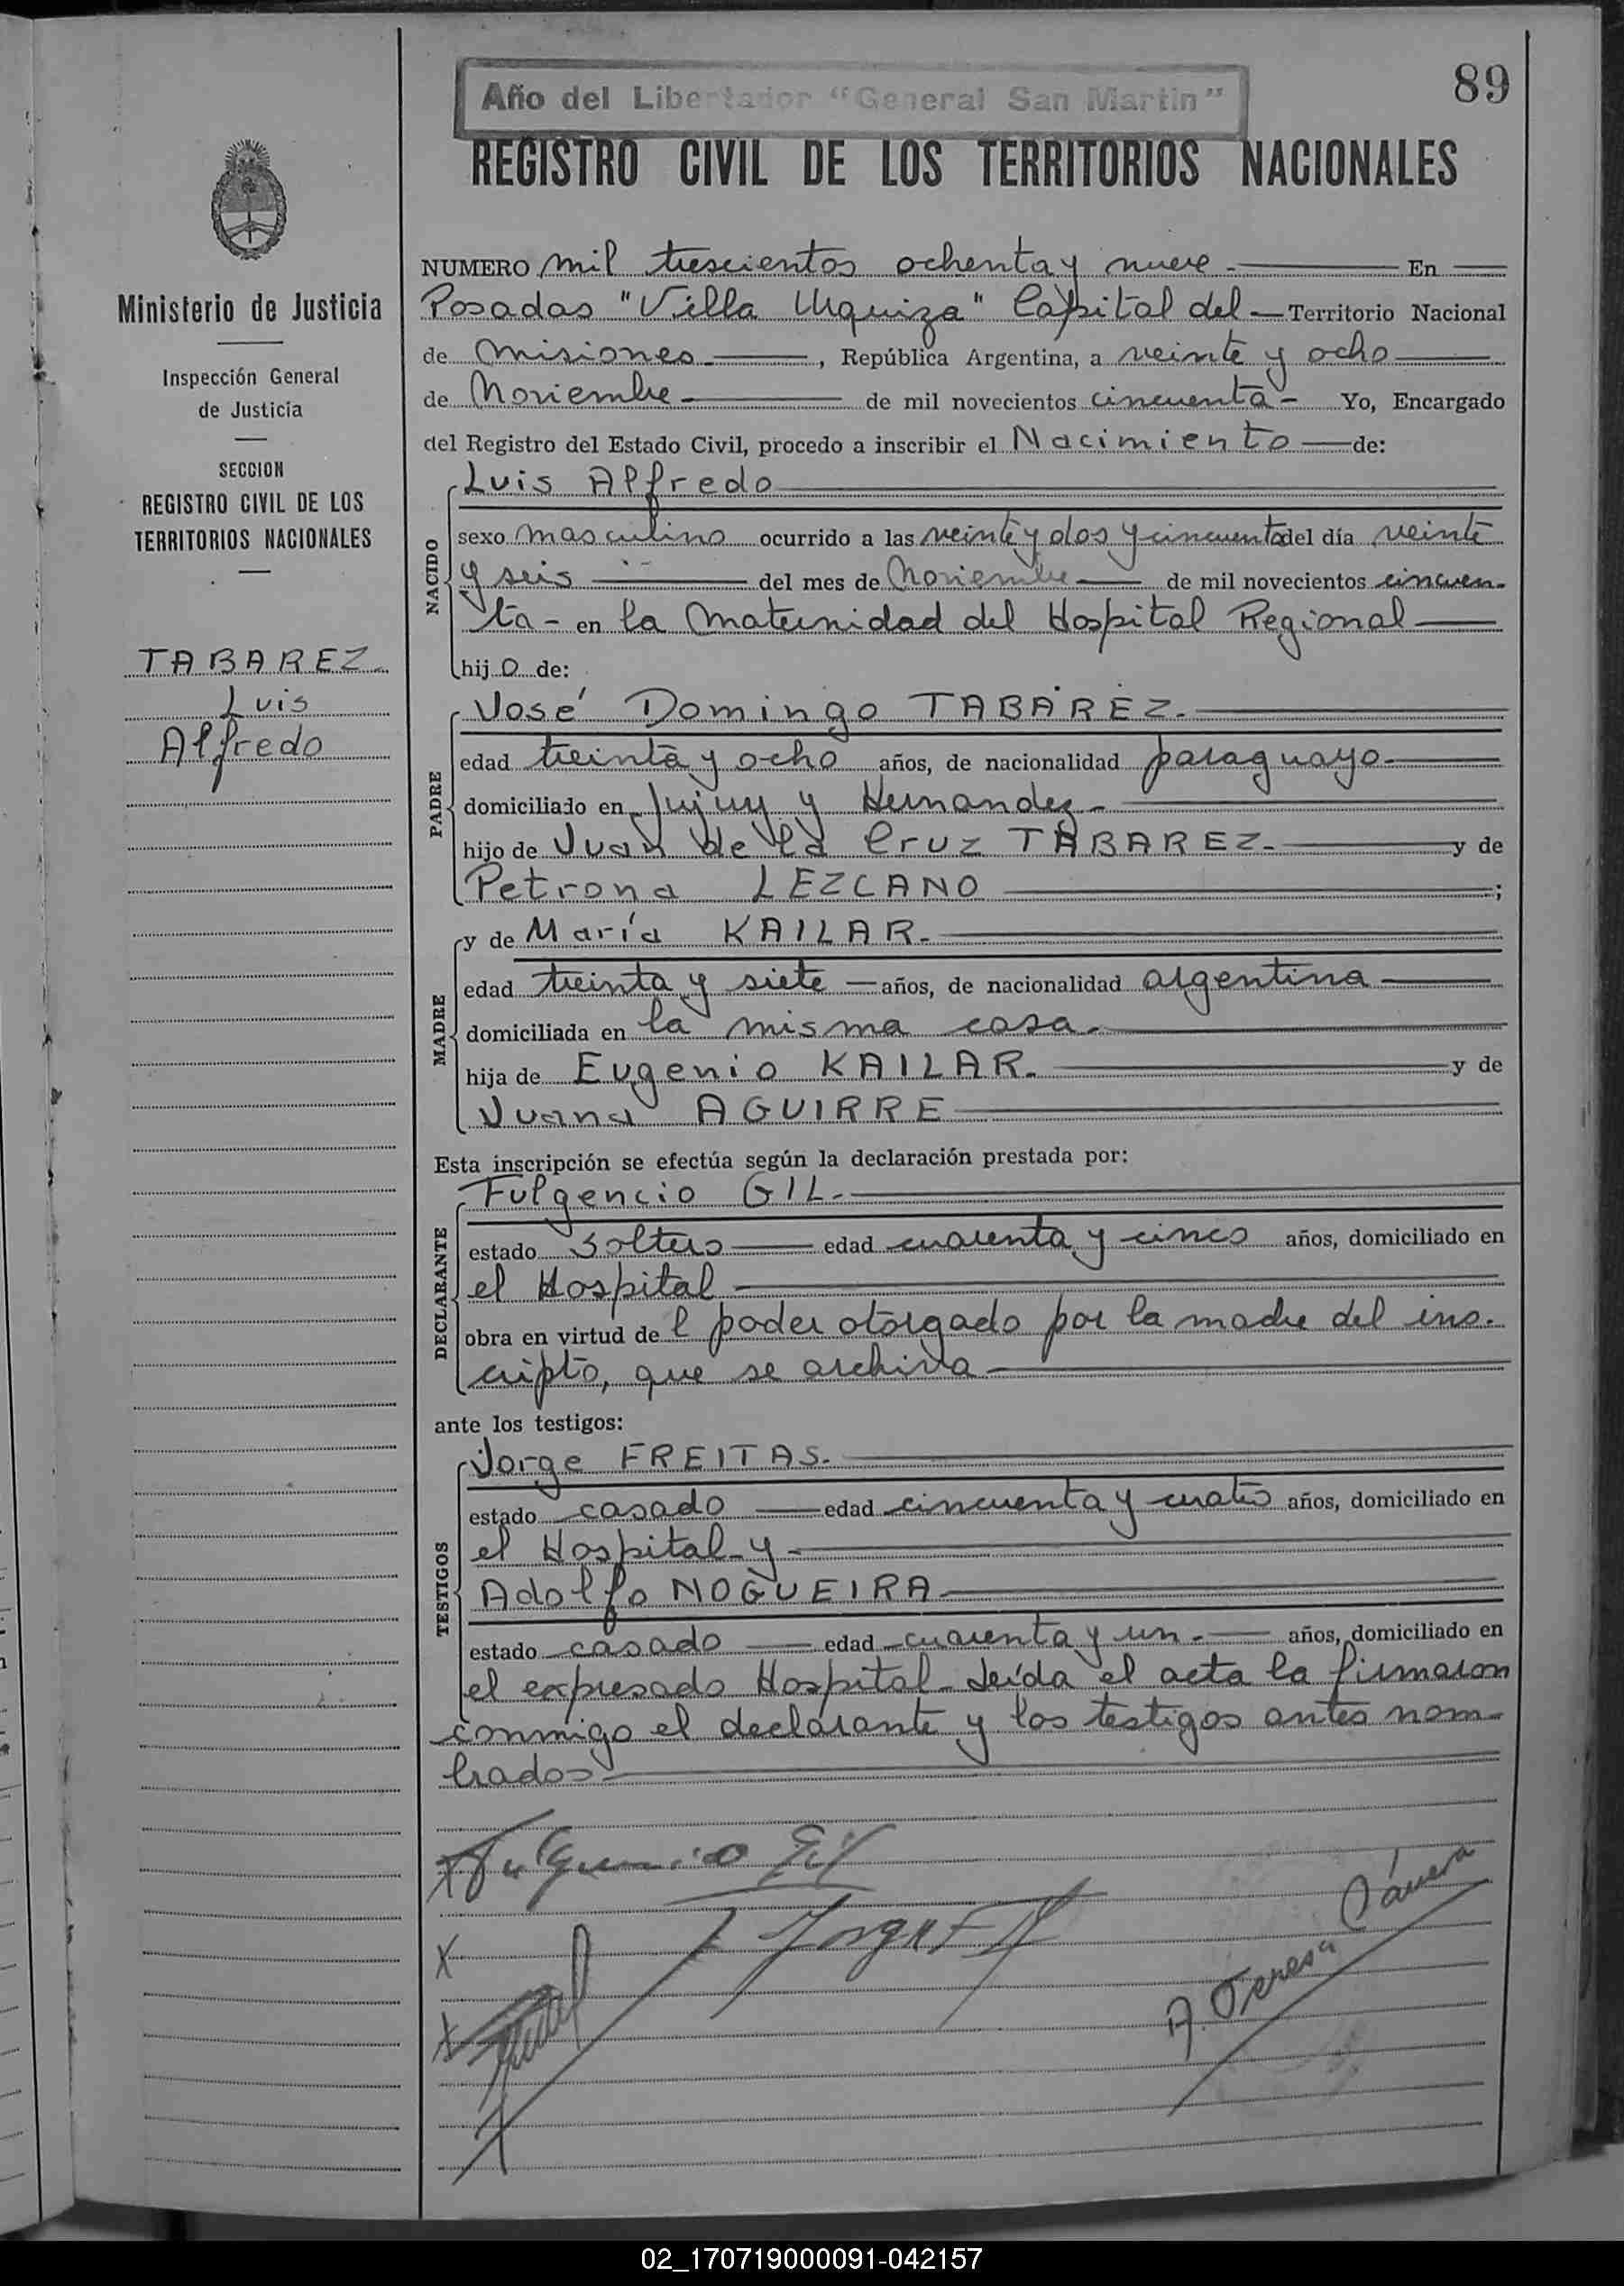 Año del Libertador "General San Martín"
89
REGISTRO CIVIL DE LOS TERRITORIOS NACIONALES
Ministerio de Justicia
Inspección General
de Justicia
SECCION
REGISTRO CIVIL DE LOS
TERRITORIOS NACIONALES
TABAREZ
Luis
Alfredo
NUMERO mil trescientos ochenta y nueve - En
Posadas "Villa Urquiza" Capital del Territorio Nacional
de Misiones , República Argentina, a veinte y ocho
de Noviembre de mil novecientos cincuenta - Yo, Encargado
del Registro del Estado Civil, procedo a inscribir el Nacimiento de:
NACIDO
Luis Alfredo
sexo masculino ocurrido a las veinte y dos y cincuenta del día veinte
y seis del mes de Noviembre de mil novecientos cincuen-
ta - en la Maternidad del Hospital Regional
hijo de:
PADRE
José Domingo TABAREZ.
edad treinta y ocho años, de nacionalidad paraguayo.
domiciliado en Jujuy y Hernandez -
hijo de Juan de la Cruz TABAREZ. y de
Petrona LEZCANO ;
MADRE
y de María KAILAR.
edad treinta y siete años, de nacionalidad argentina
domiciliada en la misma casa.
hija de Eugenio KAILAR. y de
Juana AGUIRRE
Esta inscripción se efectúa según la declaración prestada por:
DECLARANTE
Fulgencio GIL.
estado soltero edad cuarenta y cinco años, domiciliado en
el Hospital
obra en virtud del poder otorgado por la madre del ins-
cripto, que se archiva
ante los testigos:
TESTIGOS
Jorge FREITAS.
estado casado edad cincuenta y cuatro años, domiciliado en
el Hospital y -
Adolfo NOGUEIRA
estado casado edad cuarenta y un. años, domiciliado en
el expresado Hospital - Leída el acta la firmaron
conmigo el declarante y los testigos antes nom-
brados
Fulgencio Gil
Jorge F
A. Teresa
02_170719000091-042157